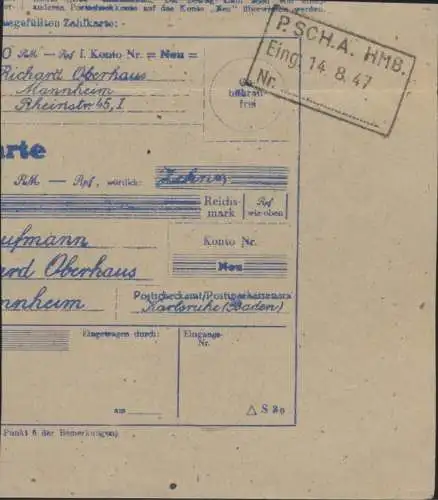 anderen Postscheckkonto auf das Konto „Neu“ überwiesen werden.
usgefüllten Zahlkarte:
P. SCH. A. HMB.
Eing. 14. 8. 47
Nr.
0 RM — Rpf i. Konto Nr. = Neu =
Richard Oberhaus
Mannheim
Rheinstr 45, I
Ge-
bühren-
frei
arte
RM — Rpf, wörtlich: Zehn
Reichs-
mark
Rpf
wie oben
ufmann
Konto Nr.
ard Oberhaus
Neu
nnheim
Postscheckamt/Postsparkassenamt
Karlsruhe (Baden)
Eingetragen durch:
Eingangs-
Nr.
am
△ S 30
Punkt 6 der Bemerkungen)